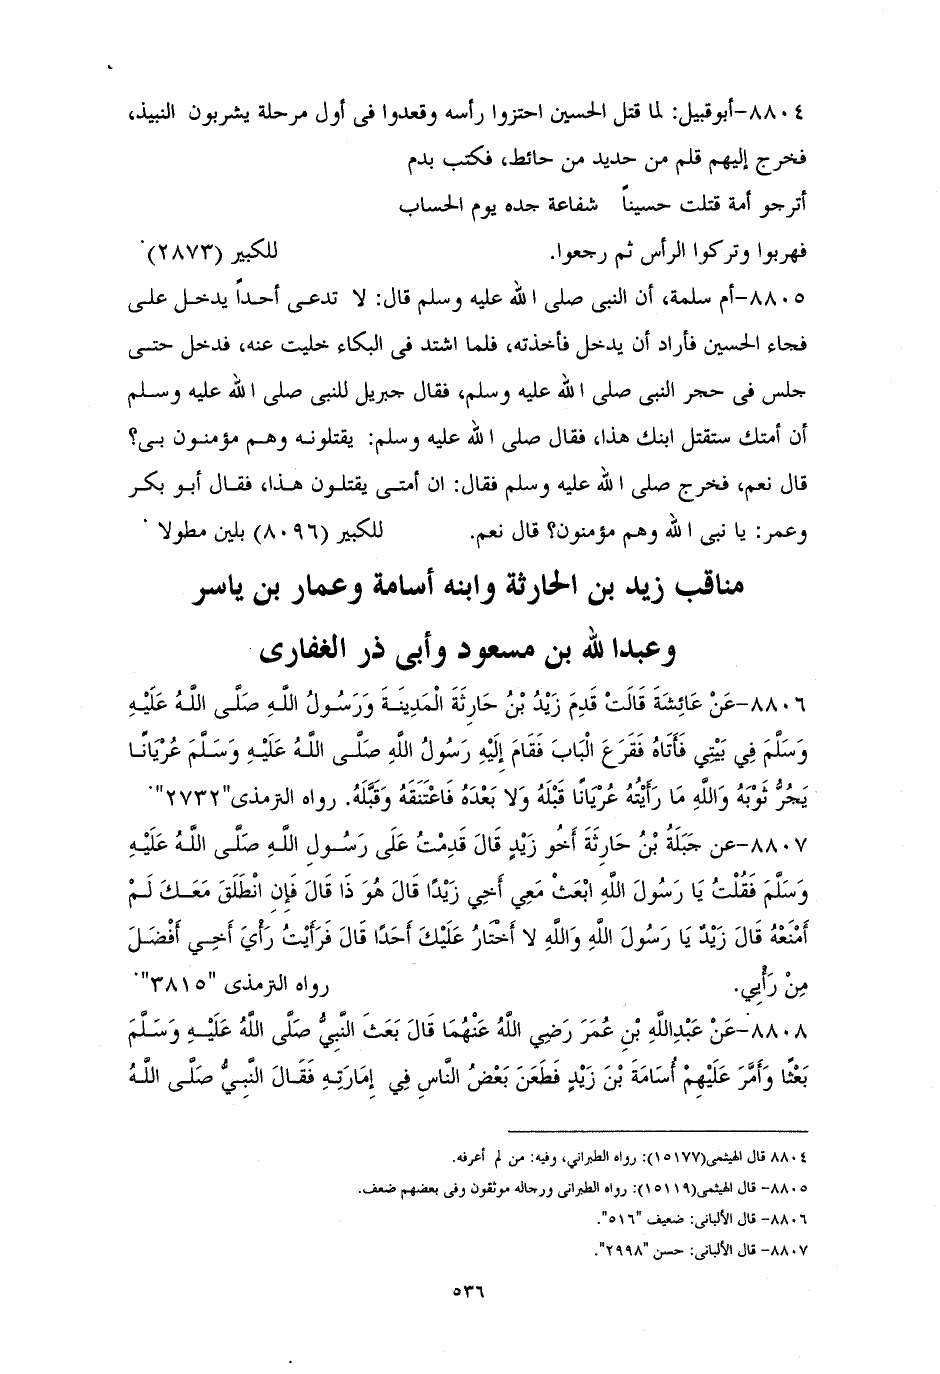 ٨٨٠٤-أبوقبيل: لما قتل الحسين احتزوا رأسه وقعدوا فى أول مرحلة يشربون النبيذ،
فخرج إليهم قلم من حديد من حائط، فكتب بدم
أترجو أمة قتلت حسيناً شفاعة جده يوم الحساب
فهربوا وتركوا الرأس ثم رجعوا. للكبير (٢٨٧٣)
٨٨٠٥-أم سلمة، أن النبى صلى الله عليه وسلم قال: لا تدعى أحداً يدخل على
فجاء الحسين فأراد أن يدخل فأخذته، فلما اشتد فى البكاء خليت عنه، فدخل حتى
جلس فى حجر النبى صلى الله عليه وسلم، فقال جبريل للنبى صلى الله عليه وسلم
أن أمتك ستقتل ابنك هذا، فقال صلى الله عليه وسلم: يقتلونه وهم مؤمنون بى؟
قال نعم، فخرج صلى الله عليه وسلم فقال: ان أمتى يقتلون هذا، فقال أبو بكر
وعمر: يا نبى الله وهم مؤمنون؟ قال نعم. للكبير (٨٠٩٦) بلين مطولا
مناقب زيد بن الحارثة وابنه أسامة وعمار بن ياسر
وعبدالله بن مسعود وأبى ذر الغفارى
٨٨٠٦-عَنْ عَائِشَةَ قَالَتْ قَدِمَ زَيْدُ بْنُ حَارِثَةَ الْمَدِينَةَ وَرَسُولُ اللَّهِ صَلَّى اللَّهُ عَلَيْهِ
وَسَلَّمَ فِي بَيْتِي فَأَتَاهُ فَقَرَعَ الْبَابَ فَقَامَ إِلَيْهِ رَسُولُ اللَّهِ صَلَّى اللَّهُ عَلَيْهِ وَسَلَّمَ عُرْيَانًا
يَجُرُّ ثَوْبَهُ وَاللَّهِ مَا رَأَيْتُهُ عُرْيَانًا قَبْلَهُ وَلا بَعْدَهُ فَاعْتَنَقَهُ وَقَبَّلَهُ. رواه الترمذى"٢٧٣٢".
٨٨٠٧-عن جَبَلَةُ بْنُ حَارِثَةَ أَخُو زَيْدٍ قَالَ قَدِمْتُ عَلَى رَسُولِ اللَّهِ صَلَّى اللَّهُ عَلَيْهِ
وَسَلَّمَ فَقُلْتُ يَا رَسُولَ اللَّهِ ابْعَثْ مَعِي أَخِي زَيْدًا قَالَ هُوَ ذَا قَالَ فَإِنِ انْطَلَقَ مَعَكَ لَمْ
أَمْنَعْهُ قَالَ زَيْدٌ يَا رَسُولَ اللَّهِ وَاللَّهِ لا أَخْتَارُ عَلَيْكَ أَحَدًا قَالَ فَرَأَيْتُ رَأْيَ أَخِي أَفْضَلَ
مِنْ رَأْيِي. رواه الترمذى "٣٨١٥".
٨٨٠٨-عَنْ عَبْدِاللَّهِ بْنِ عُمَرَ رَضِي اللَّهُ عَنْهُمَا قَالَ بَعَثَ النَّبِيُّ صَلَّى اللَّهُ عَلَيْهِ وَسَلَّمَ
بَعْثًا وَأَمَّرَ عَلَيْهِمْ أُسَامَةَ بْنَ زَيْدٍ فَطَعَنَ بَعْضُ النَّاسِ فِي إِمَارَتِهِ فَقَالَ النَّبِيُّ صَلَّى اللَّهُ
٨٨٠٤ قال الهيثمى(١٥١٧٧): رواه الطبراني، وفيه: من لم أعرفه.
٨٨٠٥- قال الهيثمى(١٥١١٩): رواه الطبرانى ورجاله موثقون وفى بعضهم ضعف.
٨٨٠٦- قال الألبانى: ضعيف "٥١٦".
٨٨٠٧- قال الألبانى: حسن "٢٩٩٨".
٥٣٦